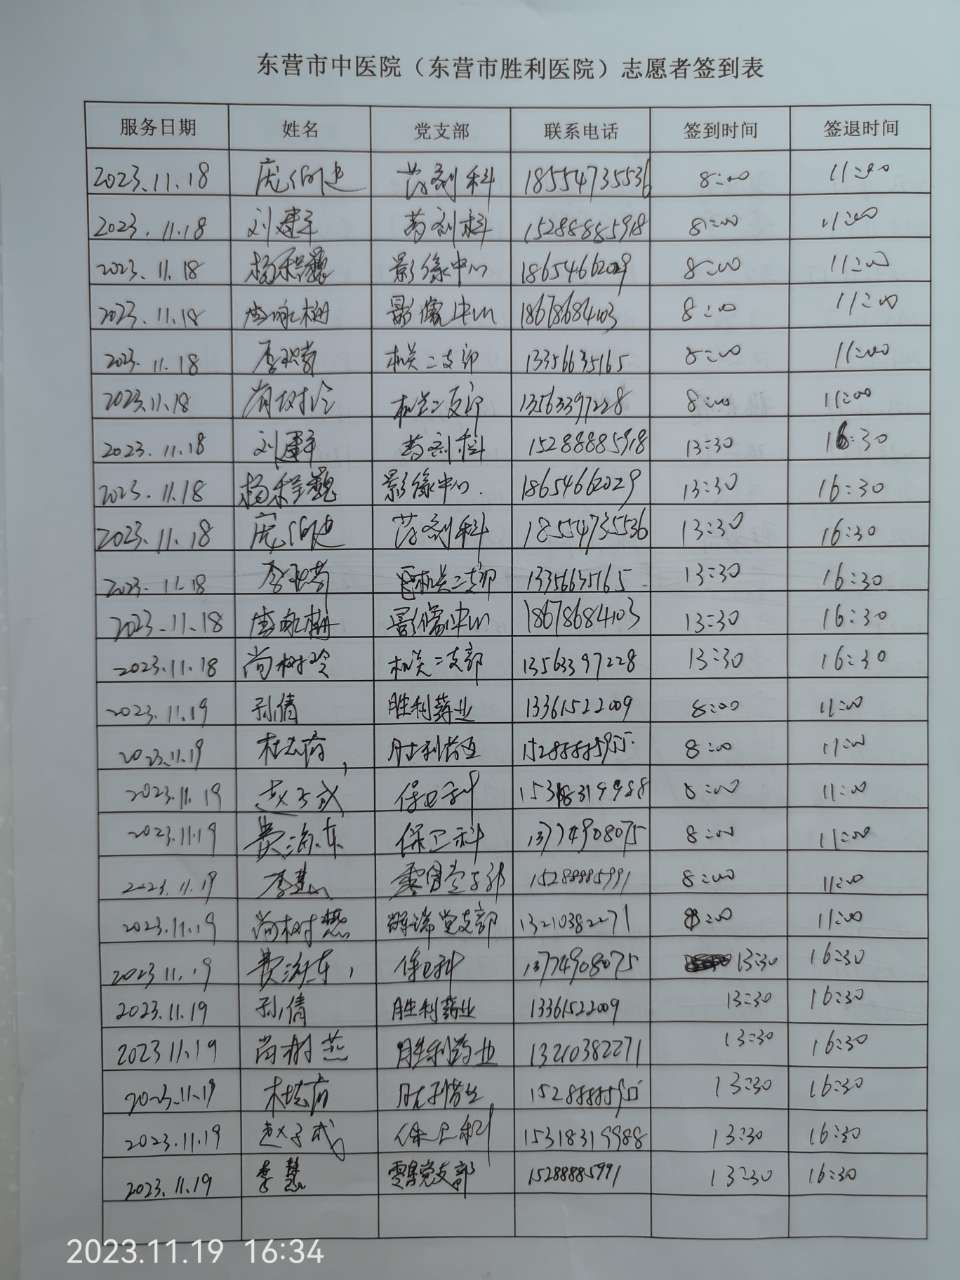 东营市中医院（东营市胜利医院）志愿者签到表
服务日期 姓名 党支部 联系电话 签到时间 签退时间
2023.11.18 药剂科 18554735536 8:00 11:00
2023.11.18 刘建军 药剂科 15288885918 8:00 11:00
2023.11.18 杨程巍 影像中心 18654662029 8:00 11:00
2023.11.18 影像中心 18678684103 8:00 11:00
2023.11.18 机关二支部 13356635165 8:00 11:00
2023.11.18 尚树玲 机关二支部 13563397228 8:00 11:00
2023.11.18 刘建军 药剂科 15288885918 13:30 16:30
2023.11.18 杨程巍 影像中心. 18654662029 13:30 16:30
2023.11.18 药剂科 18554735536 13:30 16:30
2023.11.18 机关二支部 13356635165. 13:30 16:30
2023.11.18 影像中心 18678684103 13:30 16:30
2023.11.18 尚树玲 机关二支部 13563397228 13:30 16:30
2023.11.19 孙倩 胜利药业 13361522009 8:00 11:00
2023.11.19 胜利药业 8:00 11:00
2023.11.19 赵子武 保卫科 15318319988 8:00 11:00
2023.11.19 费海东 保卫科 13774908075 8:00 11:00
2023.11.19 李慧 15288885991 8:00 11:00
2023.11.19 党支部 13210382271 8:00 11:00
2023.11.19 费海东, 保卫科 13774908075 13:30 16:30
2023.11.19 孙倩 胜利药业 13361522009 13:30 16:30
2023.11.19 尚树燕 胜利药业 13210382271 13:30 16:30
2023.11.19 胜利药业 13:30 16:30
2023.11.19 赵子武 保卫科 15318319988 13:30 16:30
2023.11.19 李慧 党支部 15288885991 13:30 16:30
2023.11.19 16:34